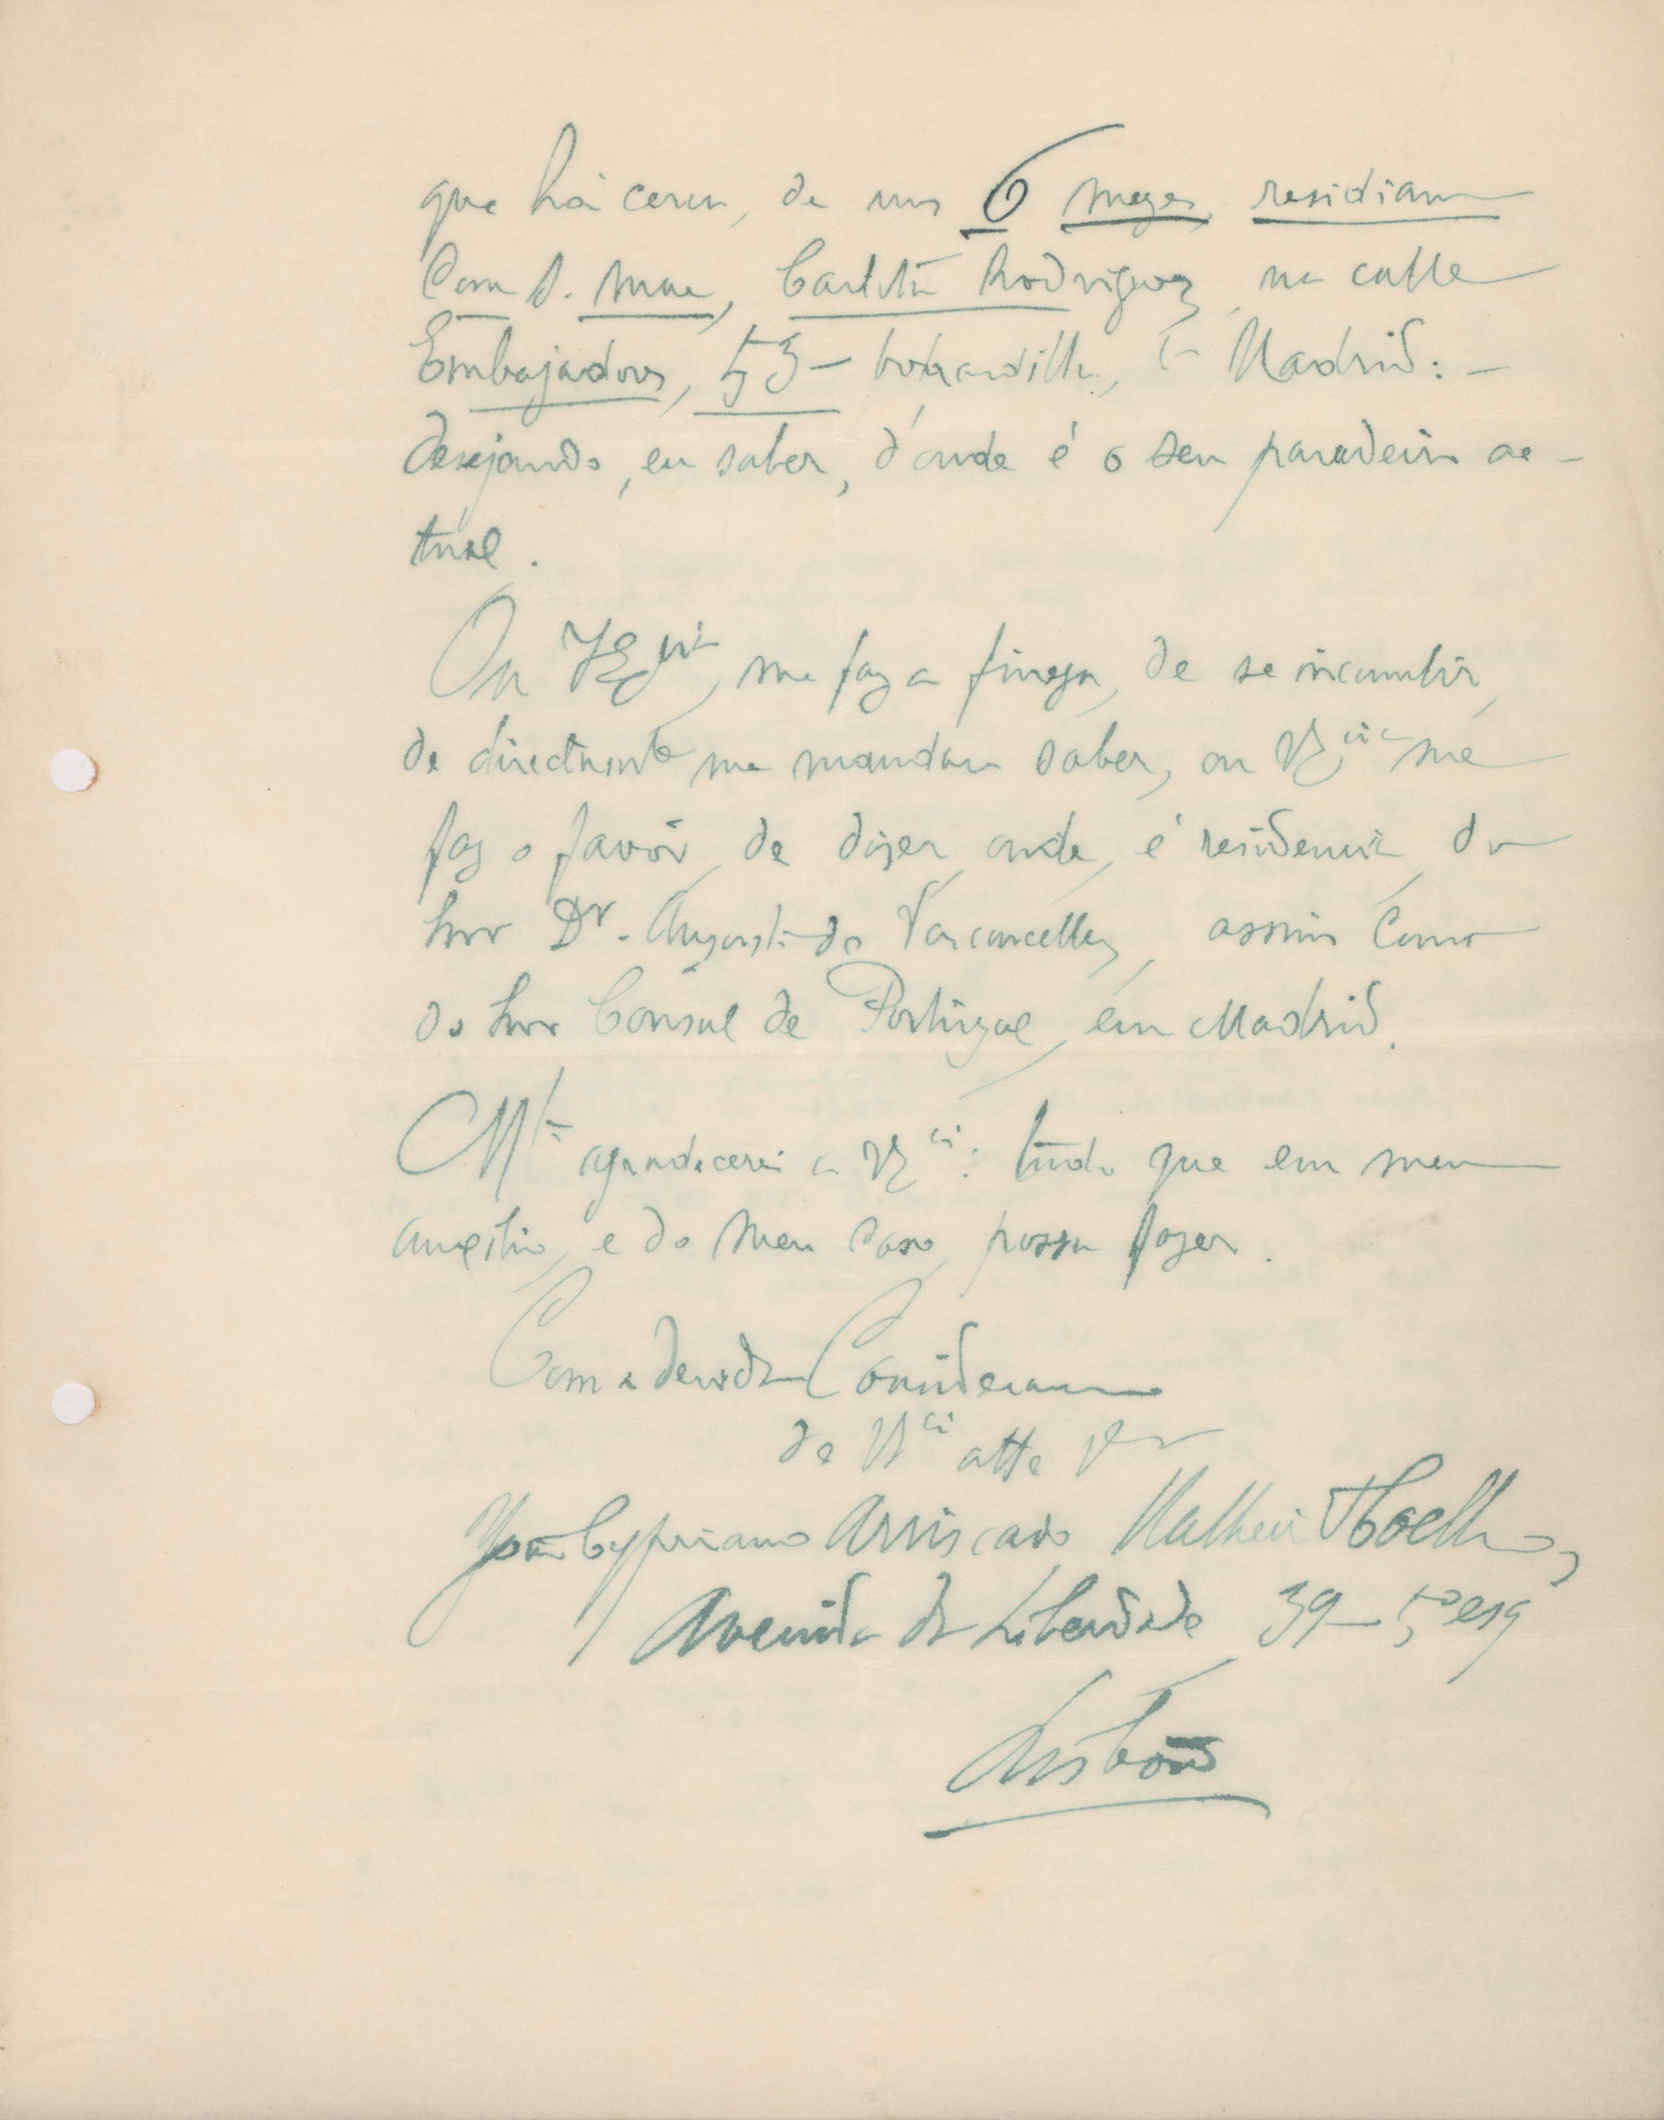 que há cerca, de uns 6 mezes, residiam
com s. mae, Rodriguez, na calle
Embajadores, 53 - bohardilla, Madrid: -
desejando, eu saber, d'onde é o seu paradeiro ac-
tual.
Ou VExcia, me faz a fineza, de se incumbir,
de directamente me mandar saber, ou VExcia me
faz o favôr, de dizer, onde, é residencia, do
Snr Dr. Augusto de Vasconcellos, assim como
do Snr Consul de Portugal, em Madrid.
Mto agradecerei a VExcia: tudo que em meu
auxilio, e do meu caso, possa fazer.
Com a devida Consideração
de VExcia atto
João Cypriano Arriscado Matheus Coelho,
Avenida da Liberdade 39 - 5º esq
Lisbôa